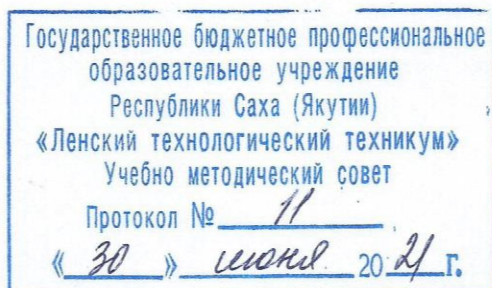 Государственное бюджетное профессиональное
образовательное учреждение
Республики Саха (Якутии)
«Ленский технологический техникум»
Учебно методический совет
Протокол № 11
« 30 » июня 2021 г.